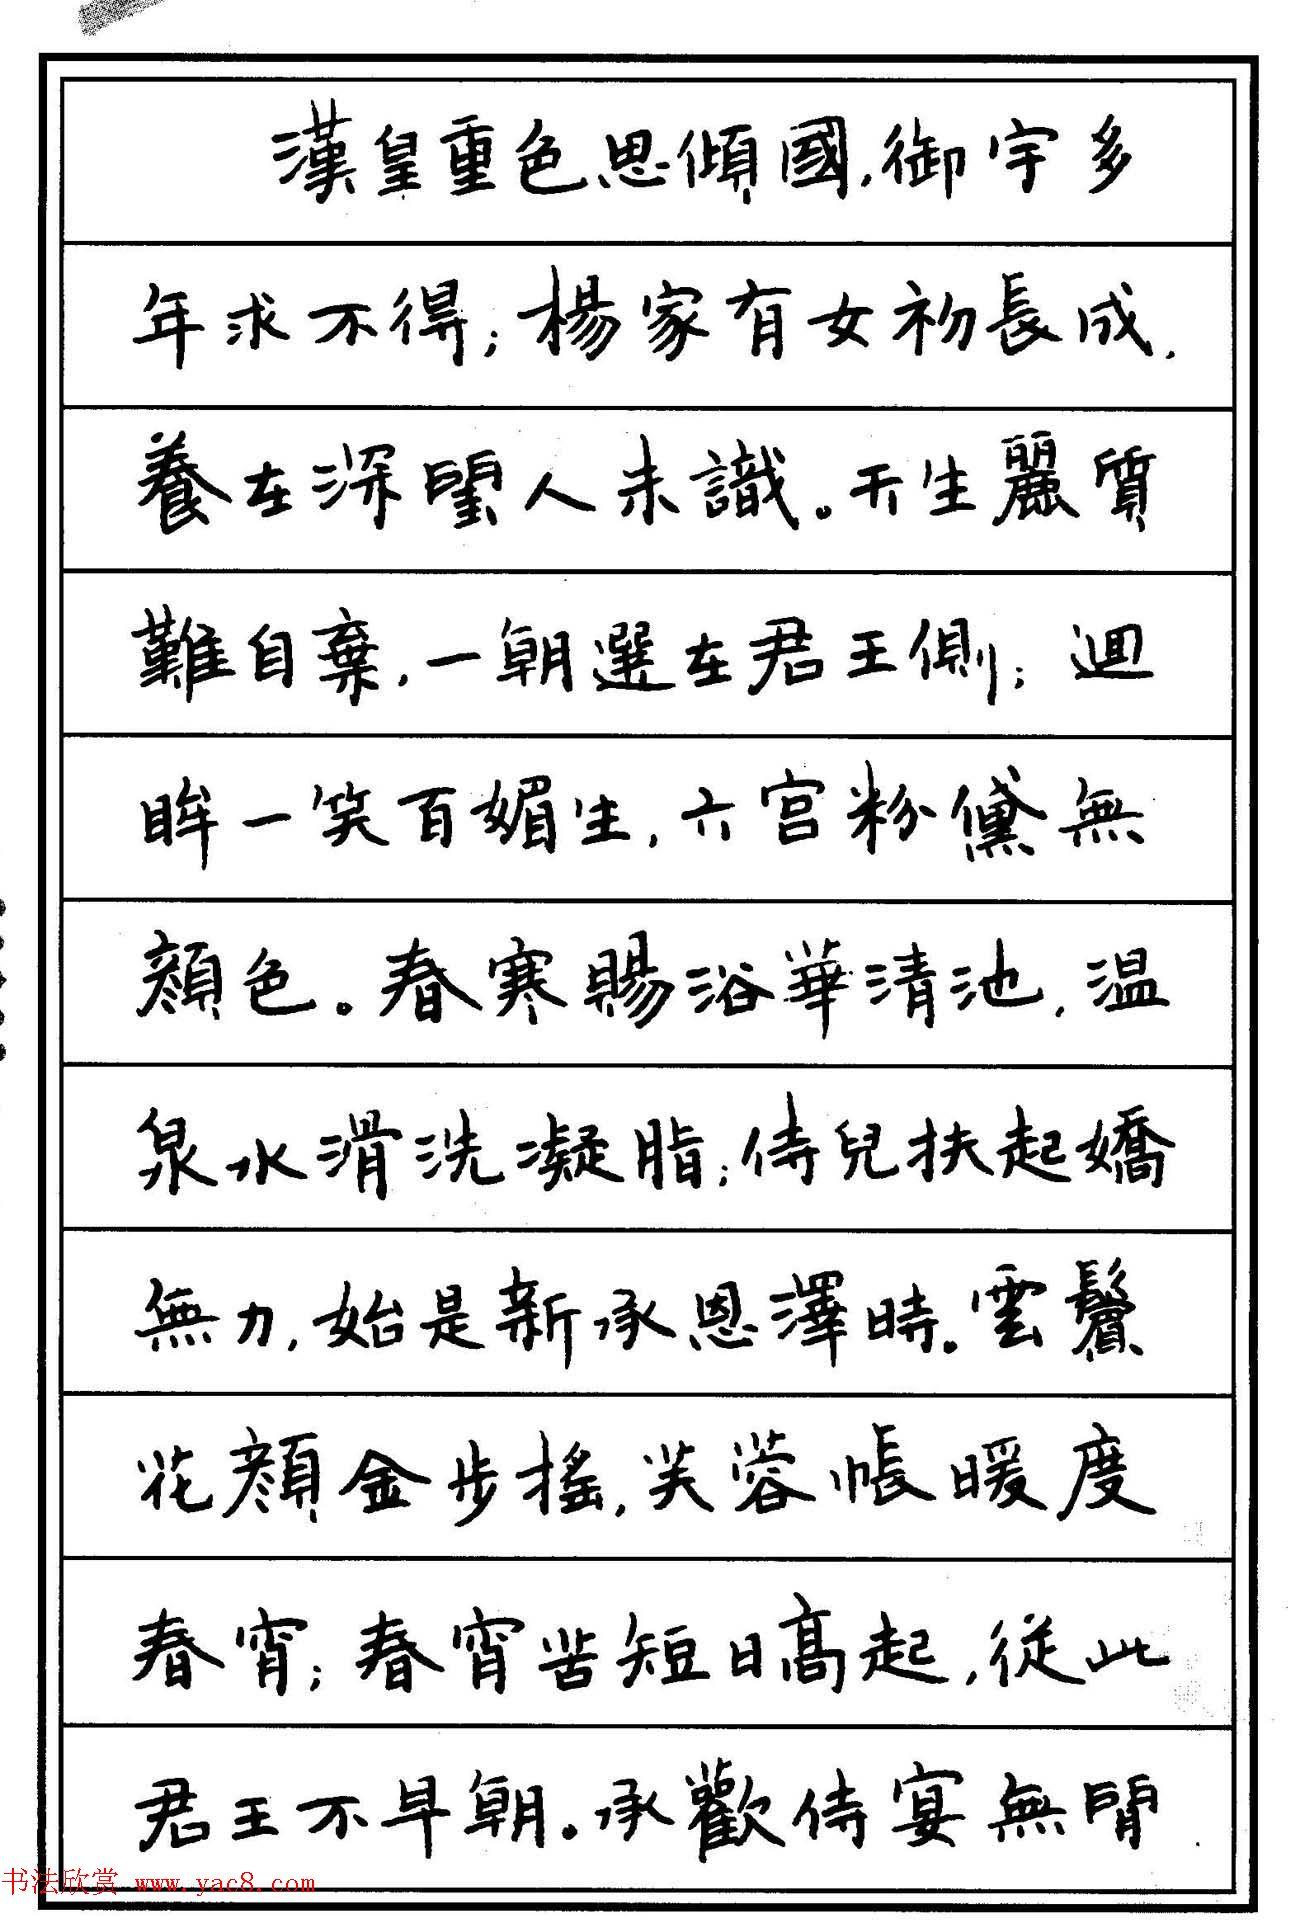 漢皇重色思傾國,御宇多
年求不得;楊家有女初長成,
養在深閨人未識。天生麗質
難自棄,一朝選在君王側;迴
眸一笑百媚生,六宫粉黛無
顏色。春寒賜浴華清池,温
泉水滑洗凝脂;侍兒扶起嬌
無力,始是新承恩澤時。雲鬢
花顏金步搖,芙蓉帳暖度
春宵;春宵苦短日高起,從此
君王不早朝。承歡侍宴無閒
书法欣赏 www.yac8.com